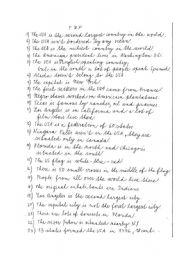 T or F
1) The USA is the second largest country in the world.
2) The USA isn't bordered by any ocean.
3) The USA is the richest country in the world?
4) The American president lives in Washington DC.
5) The USA is English speaking country
but in the world a lot of people speak
6) Alaska doesn't belong to the USA
7) The capital is New York
8) The first settlers in the USA came from France?
9) Negro slaves worked in American plantations
10) Texas is famous by ranches, oil and
11) Los Angeles is the smallest city in the USA
12) The USA is a federation of 50 states
13) Niagara Falls aren't in the USA, they are
situated only in Canada?
14) Florida is in the south and Chicago is
situated in the south?
15) The US flag is white - blue - red
16) There is 50 small crosses in the middle of the flag
17) People from all over the world live there
18) The original inhabitants are Indians
19) Los Angeles is the second largest city
20) The capital city is not the first largest city
21) There are lots of deserts in Florida?
22) The
23) 13 states formed the USA in 1776,